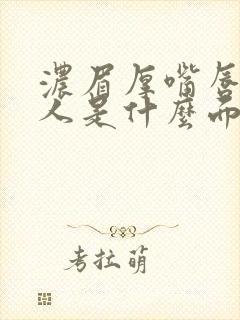 濃眉厚嘴唇
人是什麼面
考拉萌